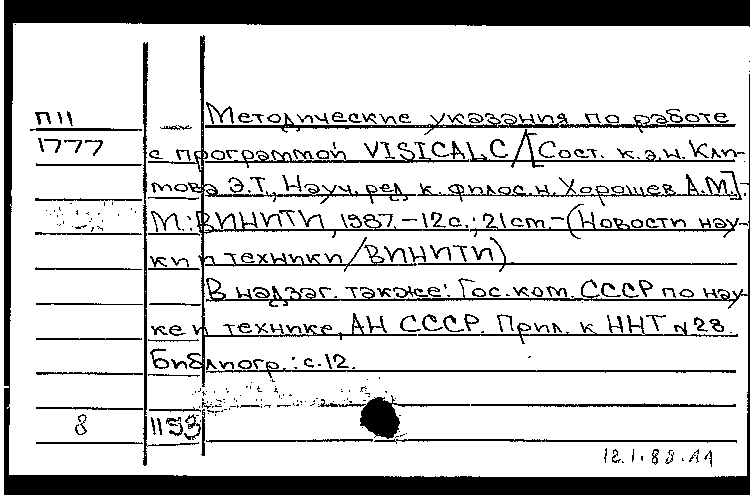 П11
1777
Методические указания по работе
с программой VISICALC/[Сост. к.э.н. Кли-
това Э.Т., Науч. ред. к. филос. н. Хорошев А.М.].-
М.: ВИНИТИ, 1987.-12с.; 21 ст.-(Новости нау-
ки и техники/ВИНИТИ).
В надзаг. также: Гос. ком. СССР по нау-
ке и технике, АН СССР. Прил. к ННТ N28.
Библиогр.: с.12.
8 1193
12.1.88.А1